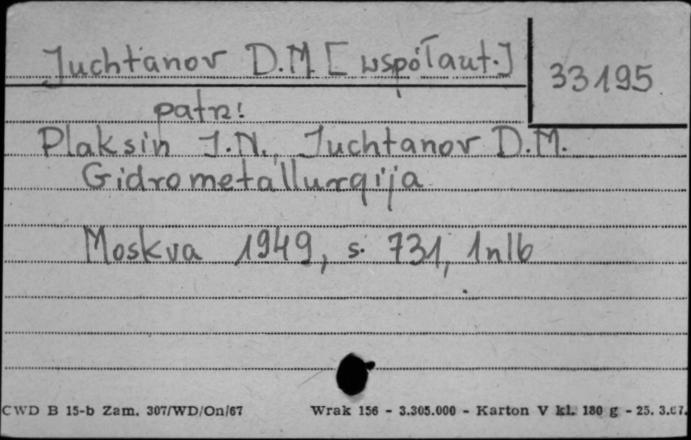 Juchtanov D.M. [współaut.]
33195
patrz:
Plaksin J.N., Juchtanov D.M.
Gidrometallurgija
Moskva 1949, s. 731, 1nlb
CWD B 15-b Zam. 307/WD/On/67
Wrak 156 - 3.305.000 - Karton V kl. 180 g - 25. 3.67.